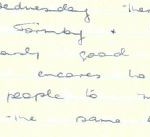 Wednesday then
Formby &
good
encores to
people to
the same